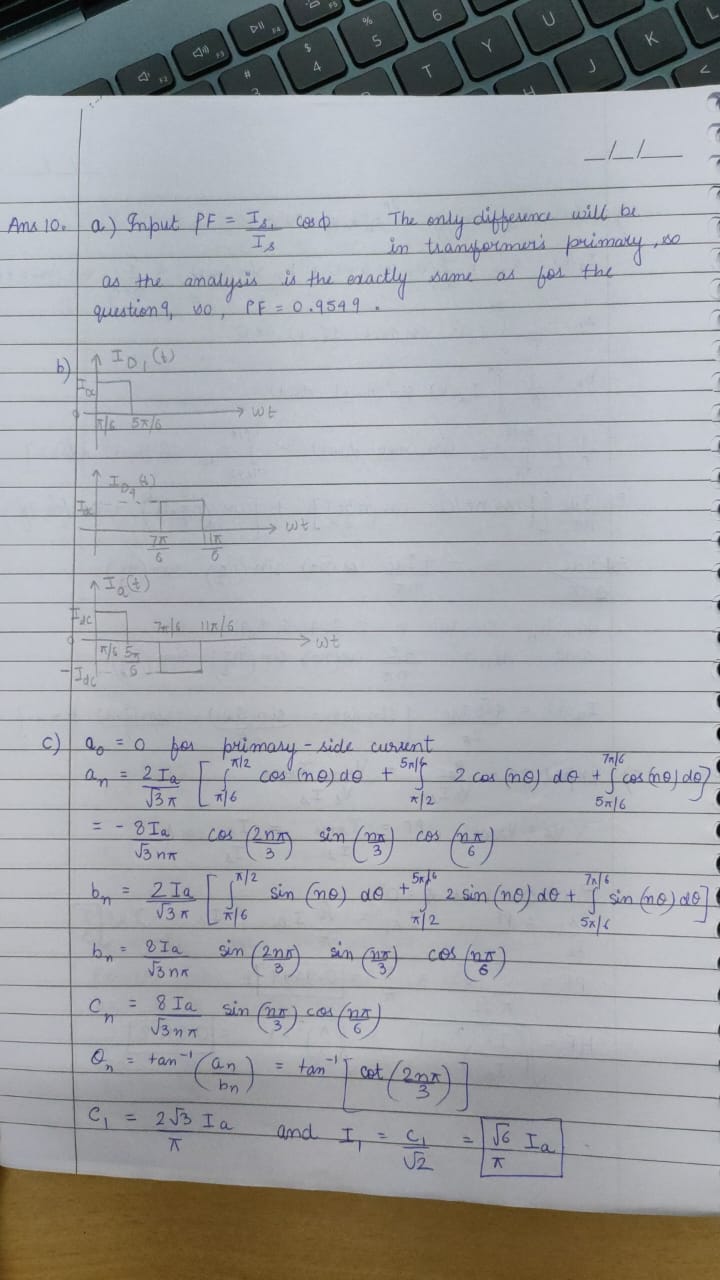 _/_/_
Ans 10. a) Input PF = I_{s1}/I_s cosϕ The only difference will be
in transformer's primary, so
as the analysis is the exactly same as for the
question 9, so, PF = 0.9549.
b) I_{D1}(t)
I_{dc}
0 π/6 5π/6 → wt
I_{D4}(t)
I_{dc}
7π/6 11π/6 → wt
I_a(t)
I_{dc}
0 π/6 5π/6 7π/6 11π/6 → wt
-I_{dc}
c) a_0 = 0 for primary-side current
a_n = 2I_a/√3π [∫_{π/6}^{π/2} cos(nθ)dθ + ∫_{π/2}^{5π/6} 2 cos(nθ) dθ + ∫_{5π/6}^{7π/6} cos(nθ)dθ]
= - 8I_a/√3nπ cos(2nπ/3) sin(nπ/3) cos(nπ/6)
b_n = 2I_a/√3π [∫_{π/6}^{π/2} sin(nθ) dθ + ∫_{π/2}^{5π/6} 2 sin(nθ)dθ + ∫_{5π/6}^{7π/6} sin(nθ)dθ]
b_n = 8I_a/√3nπ sin(2nπ/3) sin(nπ/3) cos(nπ/6)
C_n = 8I_a/√3nπ sin(nπ/3) cos(nπ/6)
θ_n = tan⁻¹(a_n/b_n) = tan⁻¹[cot(2nπ/3)]
C_1 = 2√3 I_a/π and I_1 = C_1/√2 = √6/π I_a
% 5
6
$ 4
# 3
T
Y
U
H
J
K
L
F2
F3
F4
F5